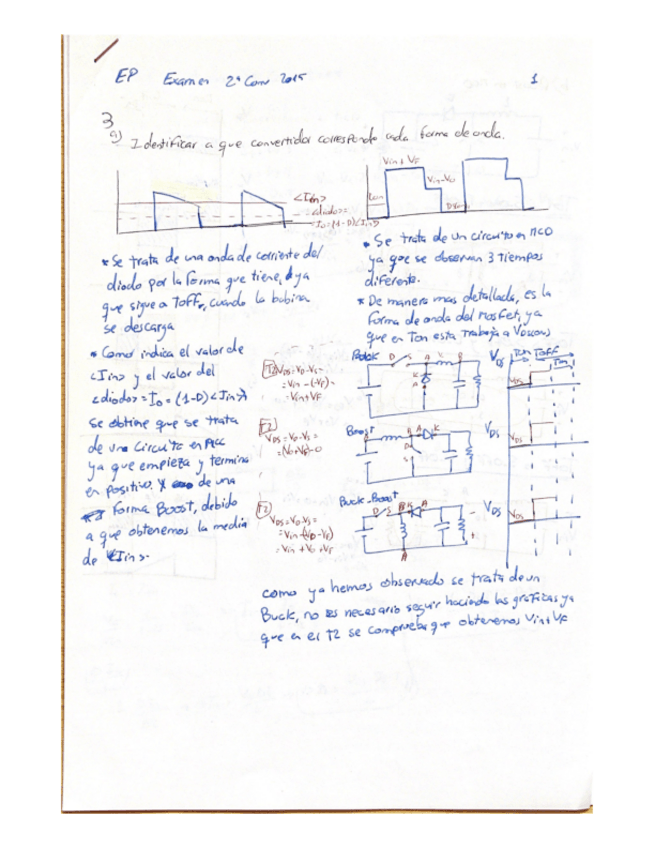 EP Examen 2ª Conv 2015
1
3
a) Identificar a que convertidor corresponde cada forma de onda.
<Iin>
<diodo>=
= Io=(1-D)<Iin>
Vin+VF
Vin-Vo
Ton
* Se trata de una onda de corriente del
diodo por la forma que tiene, ya
que sigue a Toff, cuando la bobina
se descarga
* Como indica el valor de
<Iin> y el valor del
<diodo>=Io=(1-D)<Iin>
se obtine que se trata
de una Circuito en MCC
ya que empieza y termina
en positivo. Y de una
forma Boost, debido
a que obtenemos la media
de <Iin>.
* Se trata de un circuito en MCD
ya que se observan 3 tiempos
diferente.
* De manera mas detallada, es la
forma de onda del Mosfet, ya
que en Ton esta trabaja a VDS(on)
T2 VDS=VD-VS=
=Vin-(-VF)=
=Vin+VF
Buck
D S A
K
A
VDS
Ton Toff
VDS
T2
VDS=VD-VS=
=(Vo+VF)-0
Boost
A K
D
S
VDS
VDS
T2
VDS=VD-VS=
=Vin-(-VO-VF)
=Vin+Vo+VF
Buck-Boost
D S
A
- 
+
VDS
VDS
como ya hemos observado se trata de un
Buck, no es necesario seguir haciendo las graficas ya
que en el T2 se comprueba que obtenemos Vin+VF